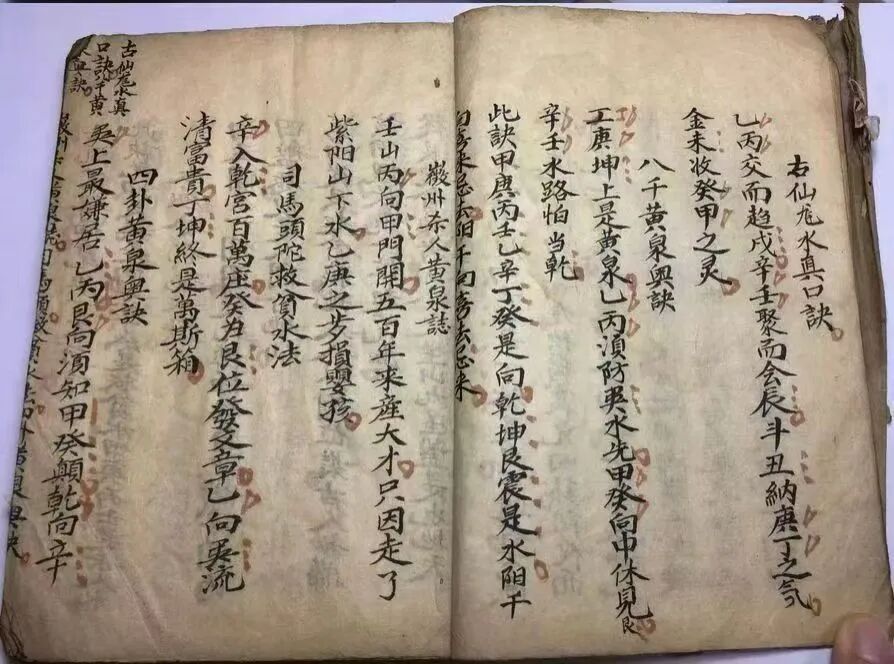 古仙尨水真口訣
乙丙交而趨戌辛壬聚而会辰斗丑納庚丁之氣
金未收癸甲之灵
八千黄泉奥訣
工庚坤上是黄泉乙丙湏防巽水先甲癸向中休見艮
辛壬水路怕当乾
此訣甲庚丙壬乙辛丁癸是向乾坤艮震是水阳千
去忌来
嚴州夲人黄泉誌
壬山丙向甲門開五百年来産大才只因走了
紫阳山下水乙庚之步損嬰孩
司馬頭陀救貧水法
辛入乾宫百萬庄癸归艮位發文章乙向巽流
清富貴丁坤終是萬斯箱
四卦黄泉奥訣
巽上最嫌居乙丙艮向須知甲癸顛乾向辛
古仙尨水真
口訣八千黄